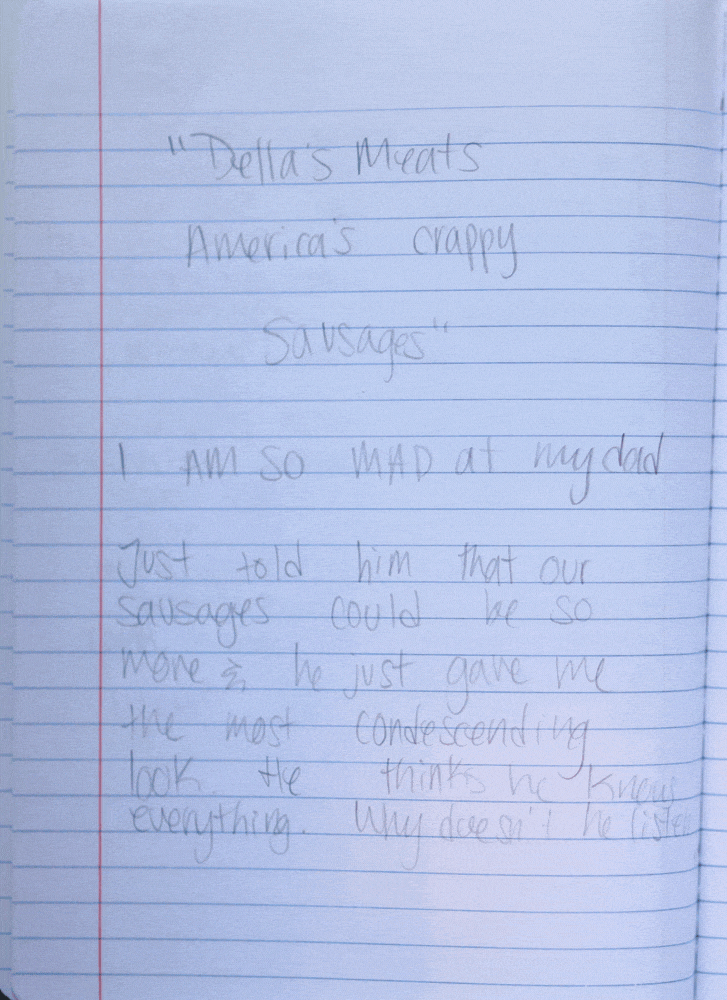 "Della's Meats
America's crappy
Sausages"
I AM SO MAD at my dad
Just told him that our
sausages could be so
more & he just gave me
the most condescending
look. He thinks he knows
everything. Why doesn't he listen